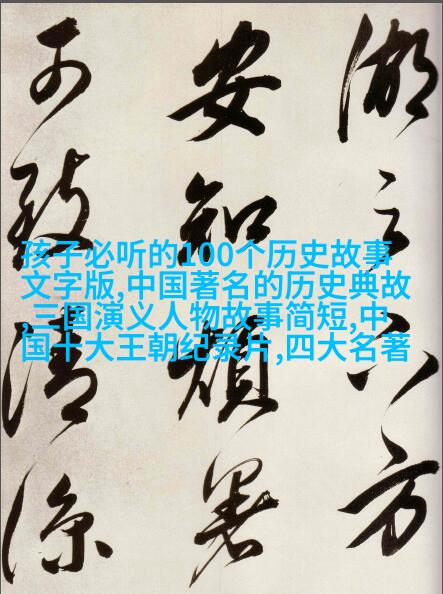 湖之方
安知煩暑
可致清涼
孩子必听的100个历史故事
文字版,中国著名的历史典故
,三国演义人物故事简短,中
国十大王朝纪录片,四大名著